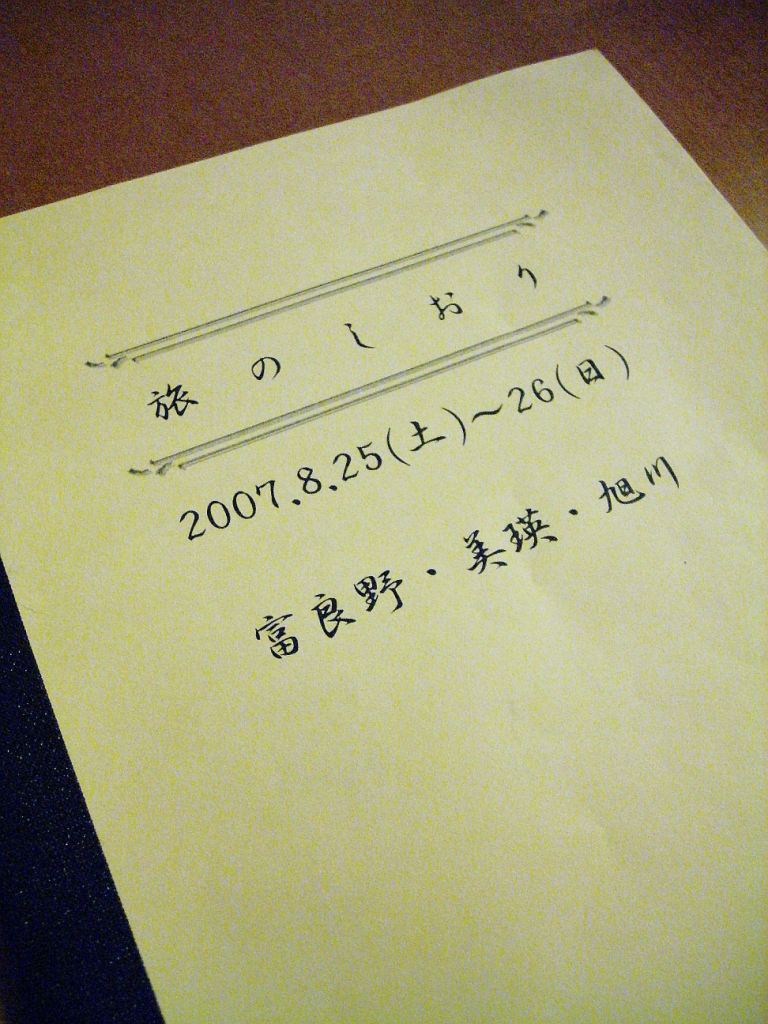 旅のしおり
2007.8.25(土)～26(日)
富良野・美瑛・旭川